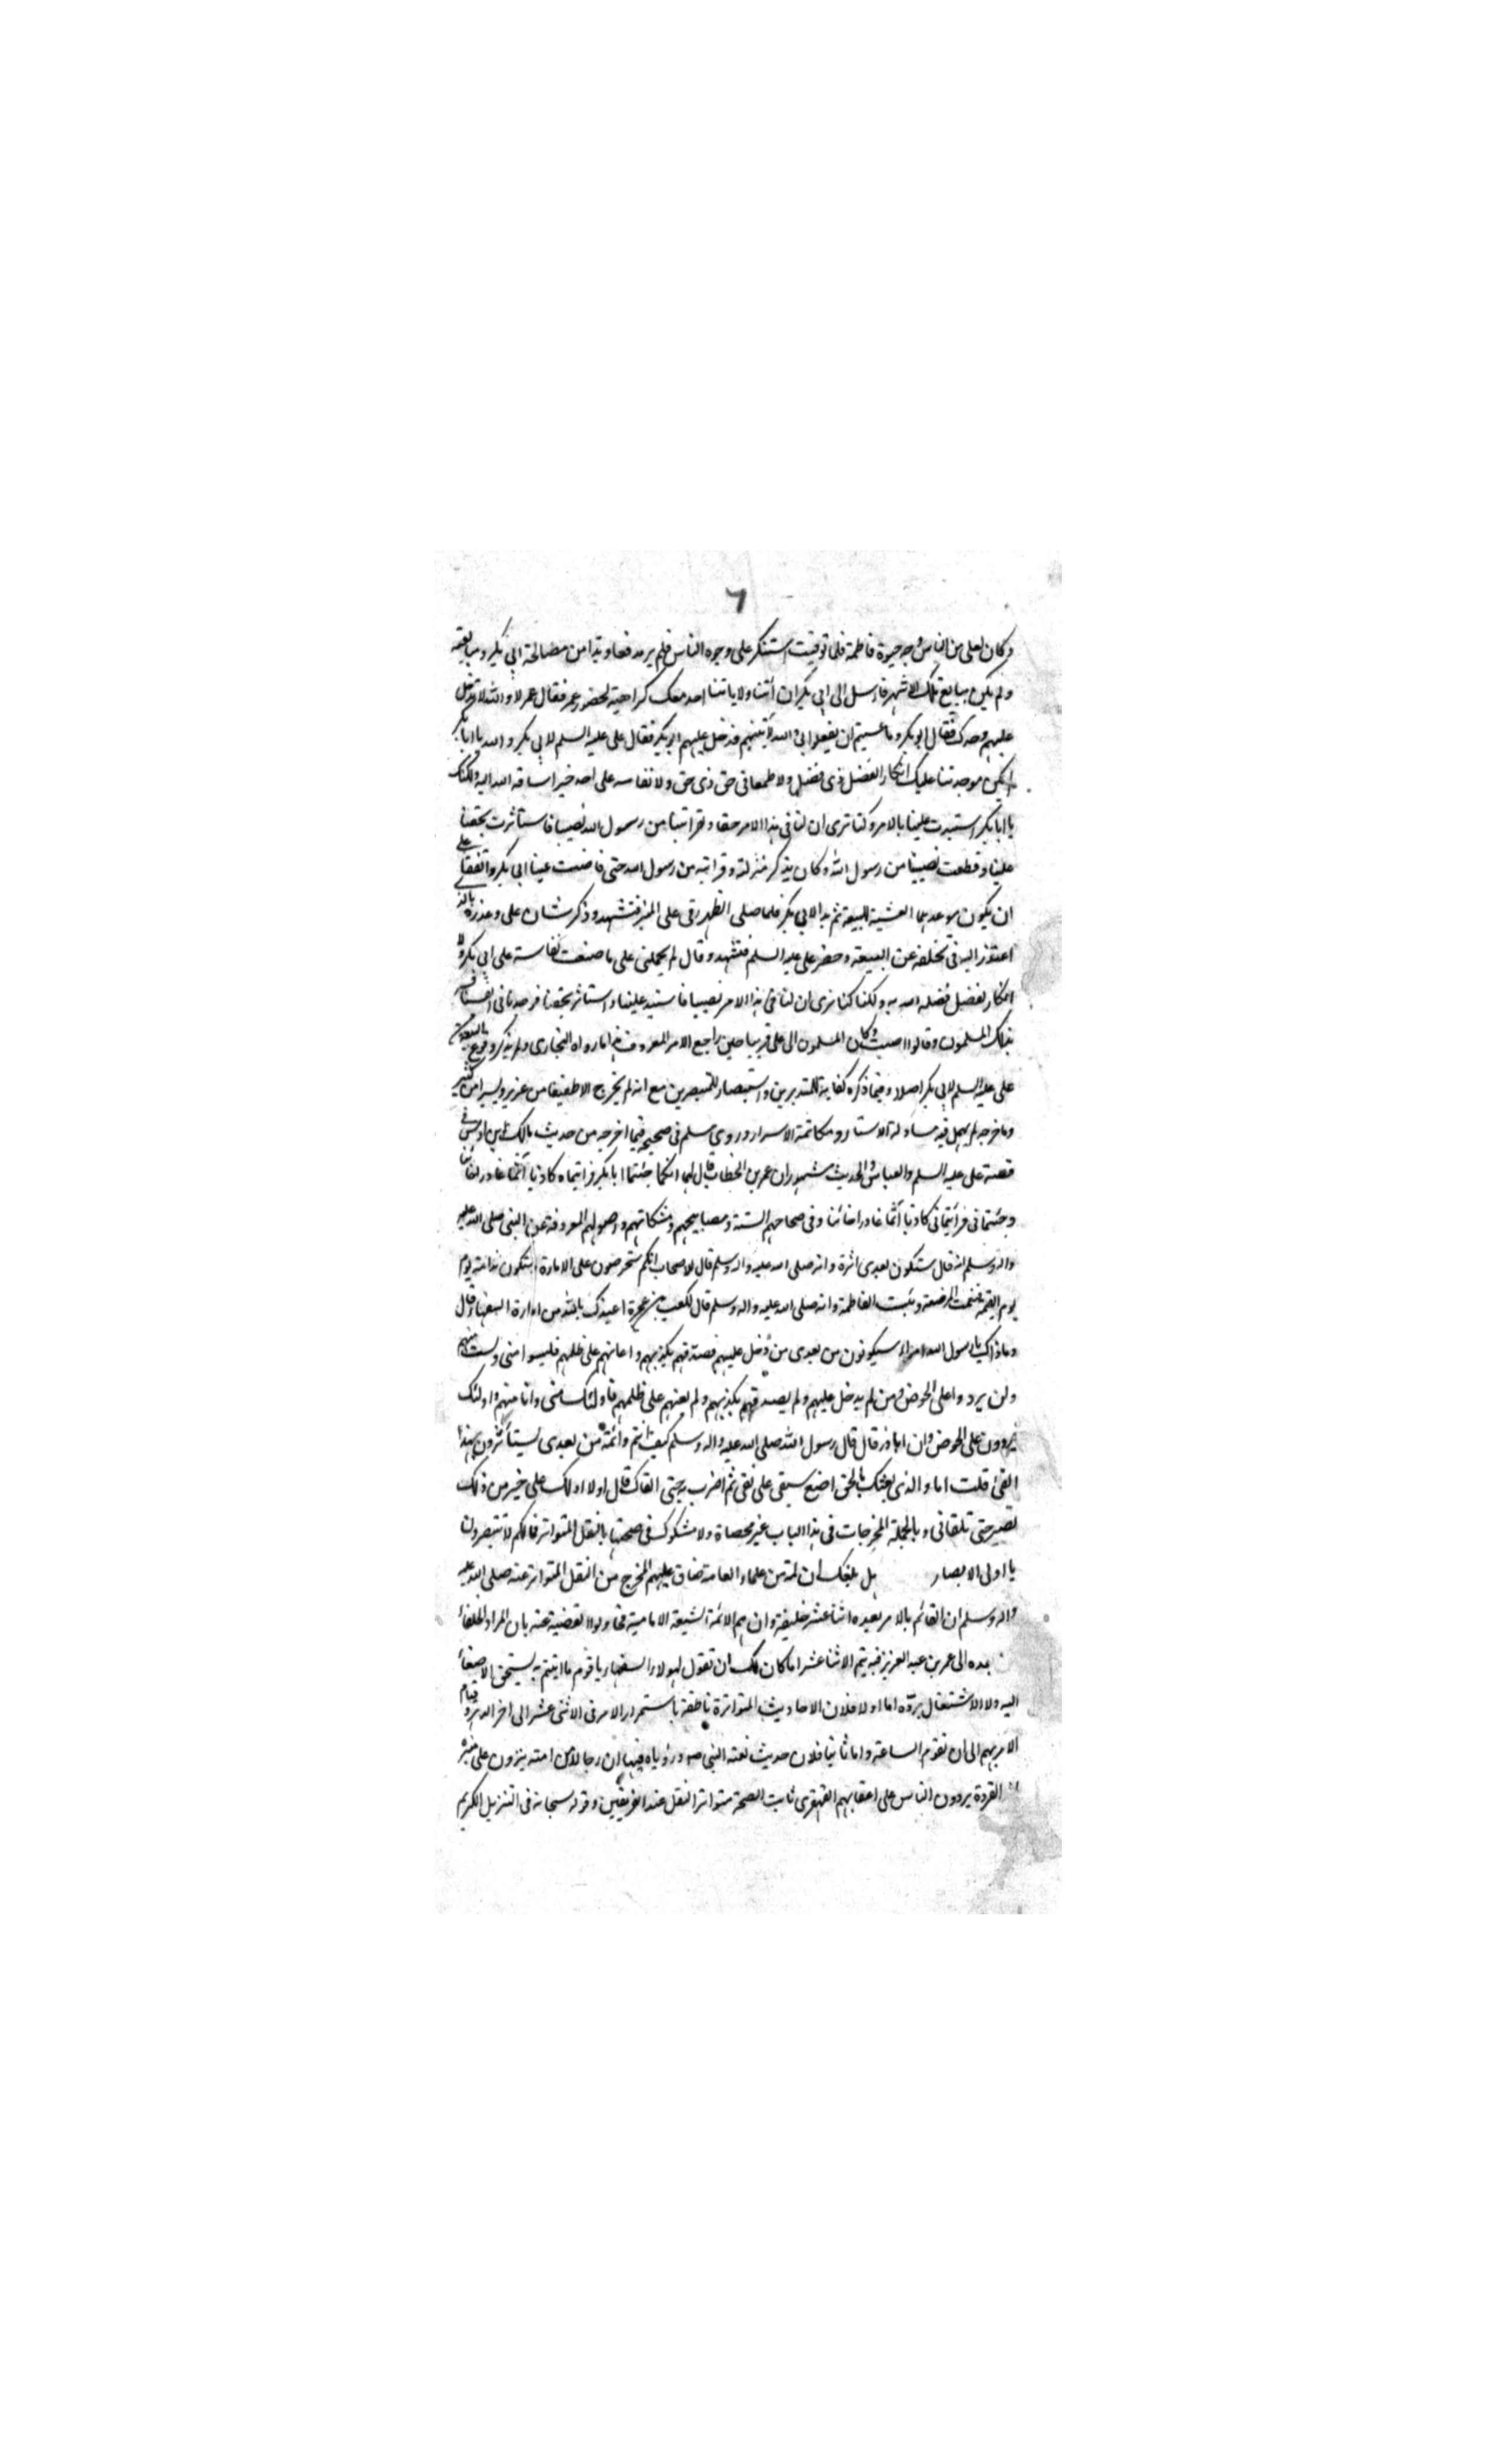 ٦
وكان لعلى من الناس وجه حيوة فاطمة فلما توفيت استنكر على وجوه الناس فلم ير مدفعا وبدا من مصالحة ابى بكر ومبايعته
ولم يكن يبايع تلك الاشهر فارسل الى ابى بكر ان أتنا ولا ياتنا احد معك كراهية لحضور عمر فقال عمر لا والله لا تدخل
عليهم وحدك فقال ابو بكر وما عسيتم ان يفعلوا بى والله لآتينهم فدخل عليهم ابو بكر فقال على عليه السلم لابى بكر والله يا ابا بكر
لم يكن موجدتنا عليك انكار الفضل ذى فضل ولا طمعا فى حق ذى حق ولا نفاسه على احد خير اساقه الله اليه ولكنك
يا ابا بكر استبدت علينا بالامر وكنا ترى ان لنا فى هذا الامر حقا وقرابتنا من رسول الله نصيبا فاستأثرت بحقنا
علينا وقطعت نصيبنا من رسول الله وكان يذكر منزلته وقرابته من رسول الله حتى فاضت عينا ابى بكر واتفقا على
ان يكون موعدهما العشية للبيعة ثم بدا لابى بكر فلما صلى الظهر رقى على المنبر فتشهد وذكر شان على وعذره بالذى
اعتذر اليه فى تخلفه عن البيعة وحضر على عليه السلم فتشهد وقال لم يحملنى على ما صنعت نفاسة على ابى بكر ولا
انكار لفضل فضله الله به ولكنا كنا نرى ان لنا فى هذا الامر نصيبا فاستبد علينا واستاثر بحقنا فوجدنا فى انفسنا فسر
بذلك المسلمون وقالوا اصبت وكان المسلمون الى على قريبا حين راجع الامر المعروف هذا ما رواه البخارى ولم يذكر وقوع بيعة
على عليه السلم لابى بكر اصلا وفيما ذكره كفاية للمتدبرين واستبصار للمتبصرين مع انه لم يخرج الا طفيفا من غزير ويسيرا من كثير
وما خرجه لم يهمل فيه مساولة الاستار ومكاتمة الاسرار وروى مسلم فى صحيحه فيما اخرجه من حديث مالك بن اوس فى
قصة على عليه السلم والعباس والحديث مشهور ان عمر بن الخطاب قال لهما انكما جئتما ابا بكر فرايتماه كاذبا آثما غادرا خائنا
وجئتمانى فرأيتمانى كاذبا آثما غادرا خائنا وفى صحاحهم الستة ومصابيحهم ومشكاتهم واصولهم المعروفة عن النبى صلى الله عليه
واله وسلم انه قال ستكون بعدى اثرة وانه صلى الله عليه واله وسلم قال لاصحابه انكم ستحرصون على الامارة وستكون ندامة يوم
يوم القيمة فنعمت المرضعة وبئست الفاطمة وانه صلى الله عليه واله وسلم قال لكعب بن عجرة اعيذك بالله من امارة السفهاء قال
وما ذاك يا رسول الله امراء سيكونون من بعدى من دخل عليهم فصدقهم بكذبهم واعانهم على ظلمهم فليسوا منى ولست منهم
ولن يردوا على الحوض ومن لم يدخل عليهم ولم يصدقهم بكذبهم ولم يعنهم على ظلمهم فاولئك منى وانا منهم واولئك
يردون على الحوض وان اباذر قال قال رسول الله صلى الله عليه واله وسلم كيف انتم وائمة من بعدى يستأثرون بهذا
الفئ قلت اما والذى بعثك بالحق اضع سيفى على عاتقى ثم اضرب به حتى القاك قال اولا ادلك على خير من ذلك
تصبر حتى تلقانى وبالجملة المخرجات فى هذا الباب غير محصاة ولا مشكوك فى صحتها بالنقل المتواتر فما لكم لا تبصرون
يا اولى الابصار بل بلغك ان لمة من علماء العامة ضاق عليهم المخرج من النقل المتواتر عنه صلى الله عليه
واله وسلم ان القائم بالامر بعده اثنا عشر خليفة وان هم الائمة الشيعة الامامية فحاولوا التفصية عنه بان المراد الخلفاء
بعده الى عمر بن عبد العزيز فبه يتم الاثنا عشر اما كان لك ان تقول لهولاء السفهاء يا قوم ما اتيتم به يستحق الاصغاء
اليه ولا الاشتغال برده اما اولا فلان الاحاديث المتواترة ناطقة باستمرار الامر فى الاثنى عشر الى اخر الدهر وقيام
الامر بهم الى ان تقوم الساعة واما ثانيا فلان حديث نعته النبى ص ورؤياه فيها ان رجالا من امته ينزون على منبره
القردة يردون الناس على اعقابهم القهقرى ثابت الصحة متواتر النقل عند الفريقين وقوله سبحانه فى التنزيل الكريم